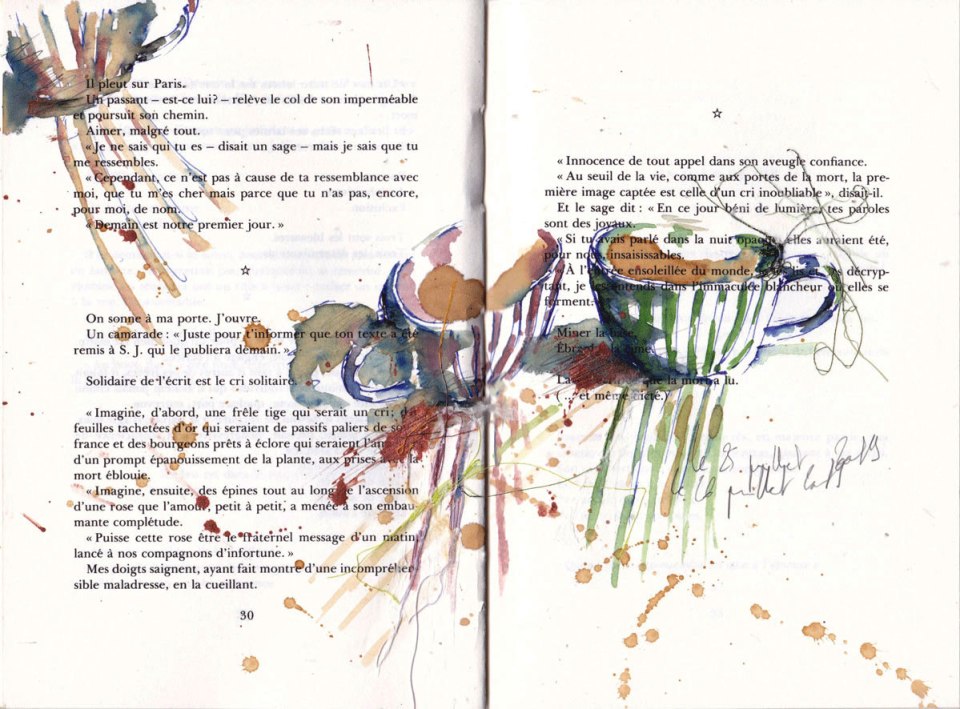 Il pleut sur Paris.
Un passant – est-ce lui? – relève le col de son imperméable
et poursuit son chemin.
Aimer, malgré tout.
« Je ne sais qui tu es – disait un sage – mais je sais que tu
me ressembles.
« Cependant, ce n'est pas à cause de ta ressemblance avec
moi, que tu m'es cher mais parce que tu n'as pas, encore,
pour moi, de nom.
« Demain est notre premier jour. »
☆
On sonne à ma porte. J'ouvre.
Un camarade : « Juste pour l'informer que ton texte a été
remis à S. J. qui le publiera demain. »
Solidaire de l'écrit est le cri solitaire.
« Imagine, d'abord, une frêle tige qui serait un cri;
feuilles tachetées d'or qui seraient de passifs paliers de
france et des bourgeons prêts à éclore qui seraient
d'un prompt épanouissement de la plante, aux prises avec la
mort éblouie.
« Imagine, ensuite, des épines tout au long de l'ascension
d'une rose que l'amour, petit à petit, a menée à son embau-
mante complétude.
« Puisse cette rose être le fraternel message d'un matin,
lancé à nos compagnons d'infortune. »
Mes doigts saignent, ayant fait montre d'une incompréhen-
sible maladresse, en la cueillant.
30
☆
« Innocence de tout appel dans son aveugle confiance.
« Au seuil de la vie, comme aux portes de la mort, la pre-
mière image captée est celle d'un cri inoubliable », disait-il.
Et le sage dit : « En ce jour béni de lumière, tes paroles
sont des joyaux.
« Si tu avais parlé dans la nuit opaque, elles auraient été,
pour nous, insaisissables.
« À l'entrée ensoleillée du monde, je les lis et, les décryp-
tant, je les entends dans l'immaculée blancheur où elles se
forment.
Miser la
La que la mort a lu.
(... et même dicté.)
le 25 juillet
juillet